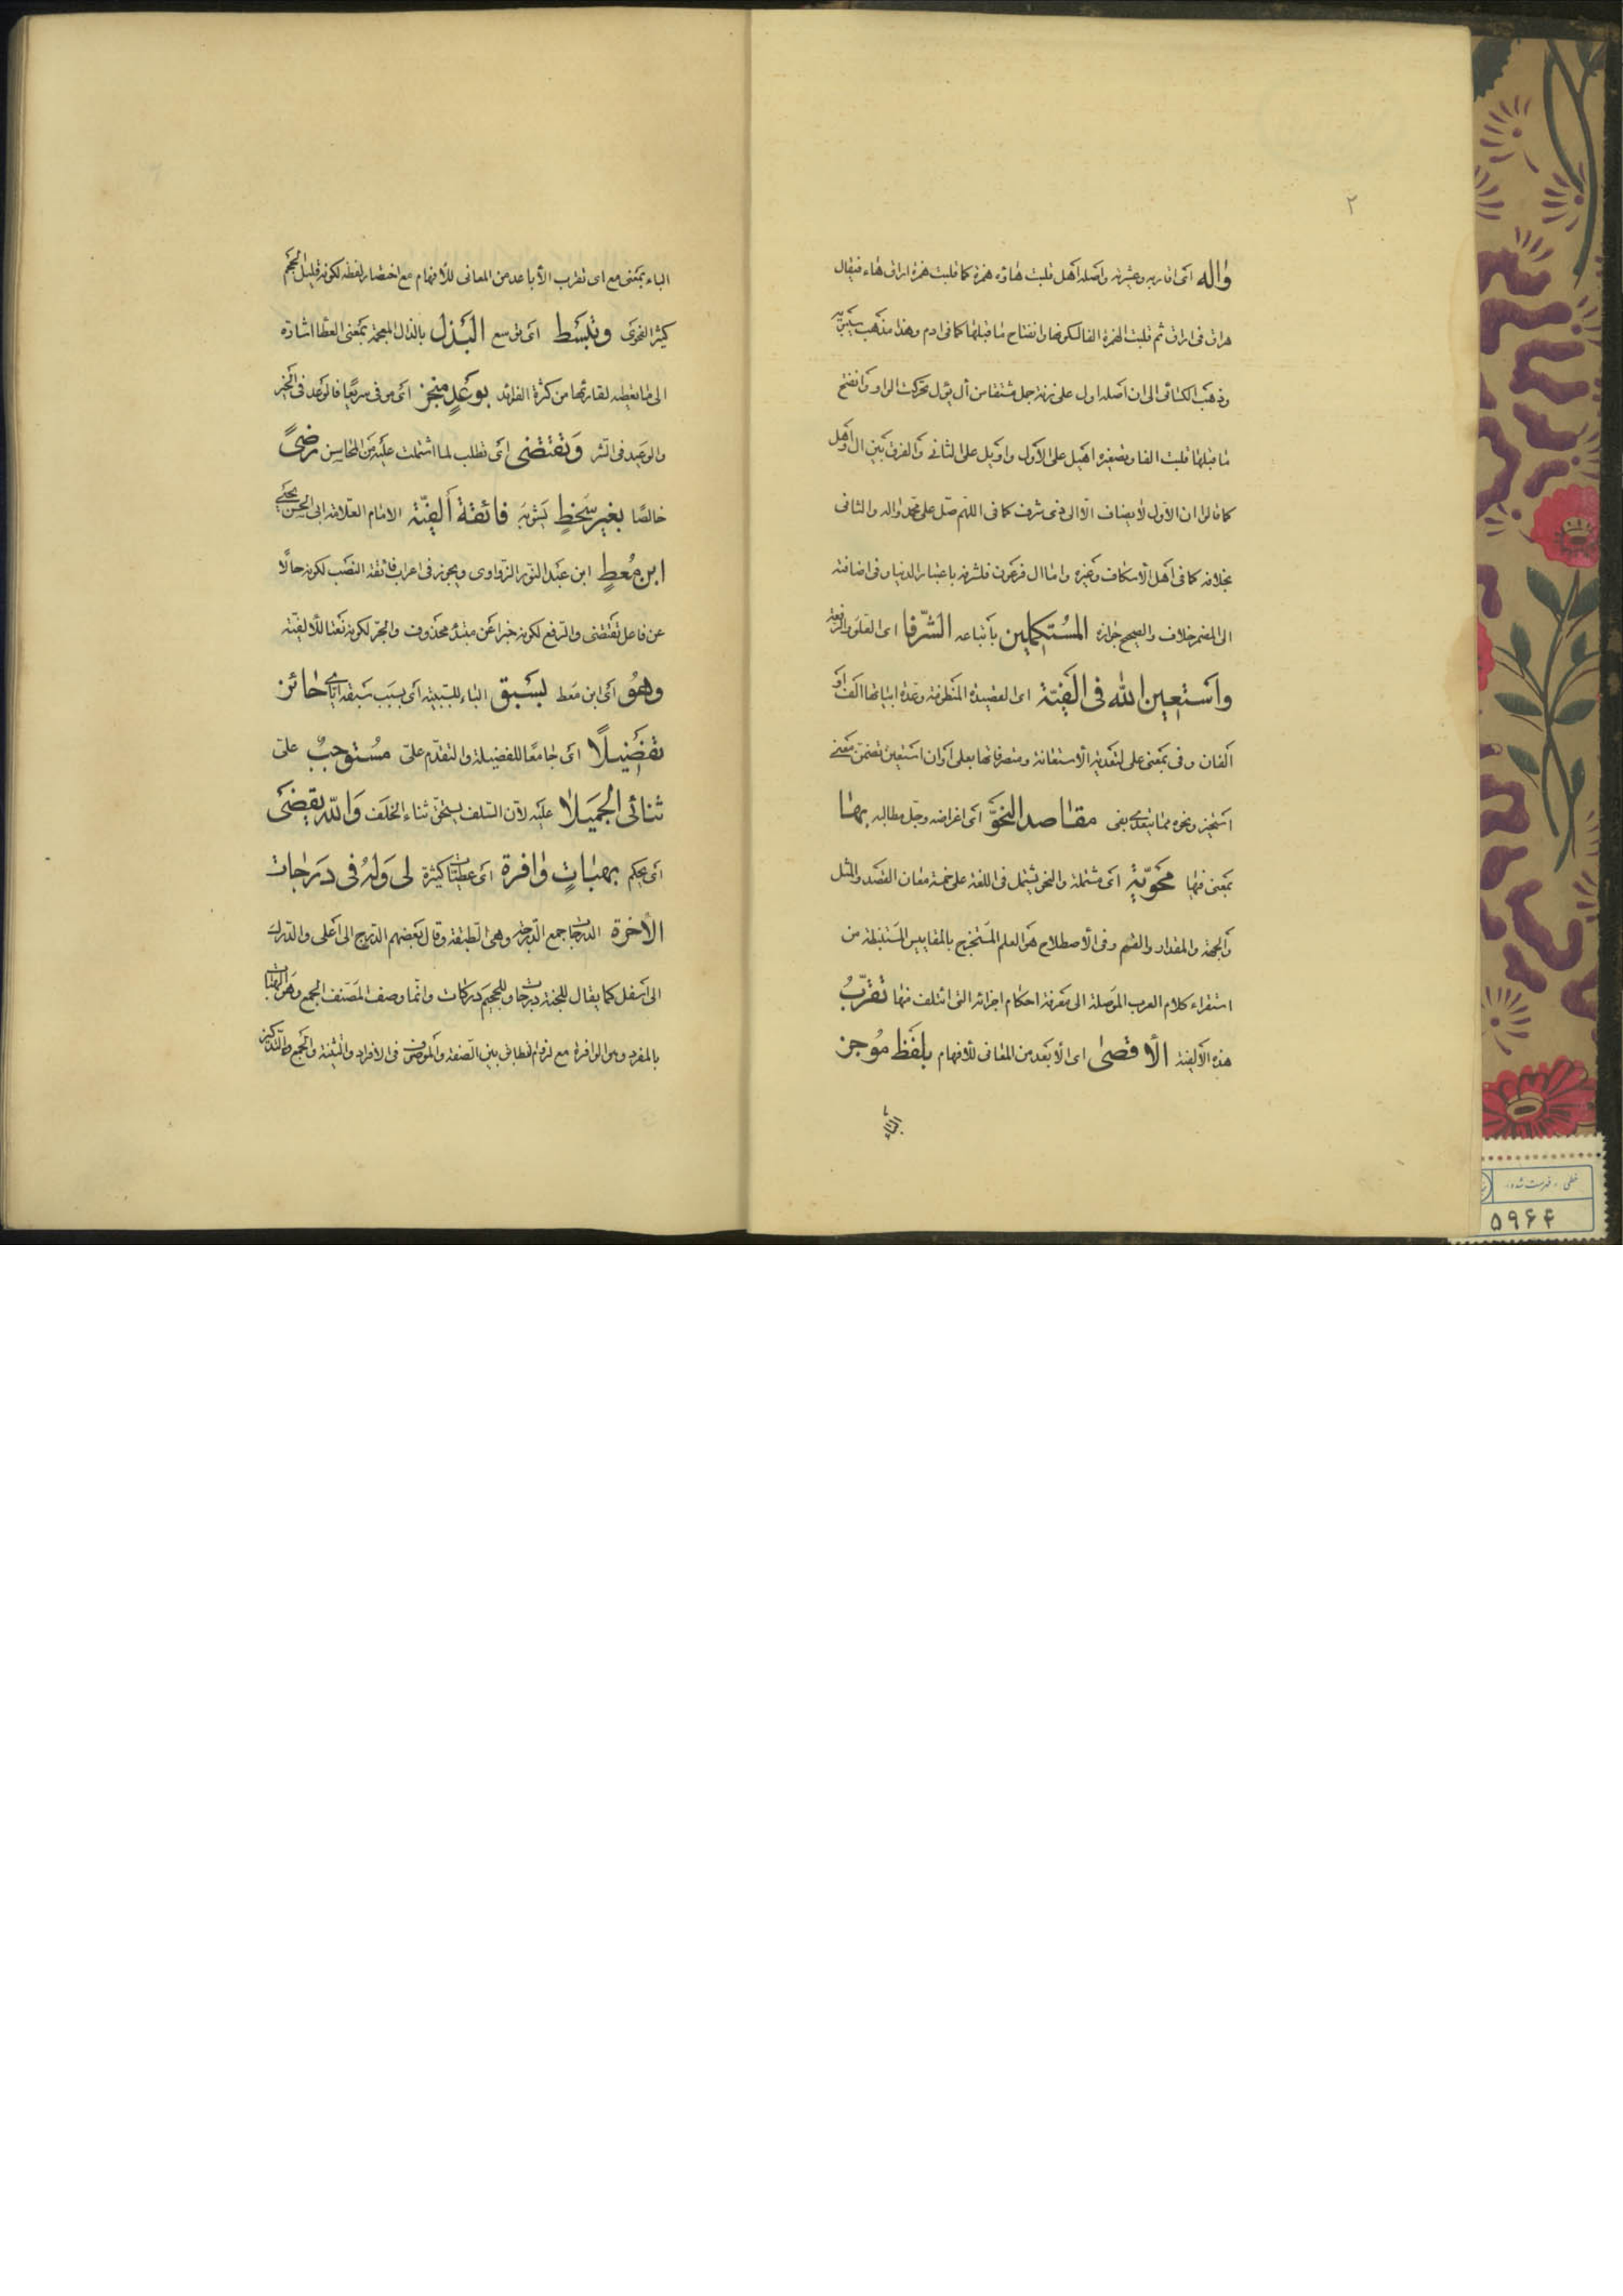 ٢
واله اى اقاربه وعشيرته واصله اهل قلبت هاؤه همزة كما قلبت همزة اراق هاء فيقال
هراق فى اراق ثم قلبت الهمزة الفا لسكونها وانفتاح ما قبلها كما فى ادم وهذا مذهب سيبويه
وذهب الكسائى الى ان اصله اول على زنة جمل مشتقا من آل يؤل تحركت الواو وانفتح
ما قبلها قلبت الفا وتصغيره اهيل على الاول واويل على الثانى والفرق بين ال واهل
كما قالوا ان الاول لا يضاف الا الى ذى شرف كما فى اللهم صل على محمد واله والثانى
بخلافه كما فى اهل الاسكاف وغيره واما ال فرعون فلشرفه باعتبار الدنيا وفى اضافته
الى المضمر خلاف والصحيح جوازه المستكملين باتباعه الشرفا اى العلو والرفعة
واستعين الله فى الفية اى القصيدة المنظومة وعدة ابياتها الف او
الفان وفى بمعنى على لتعدية الاستعانة ومتصرفاتها بعلى او ان استعين تضمن معنى
استخير ونحوه مما يتعدى بفى مقاصد النحو اى اغراضه وجل مطالبه بها
بمعنى فيها محوية اى مشتملة والنحو يشتمل فى اللغة على خمسة معان القصد والمثل
والجهة والمقدار والقسم وفى الاصطلاح هو العلم المستخرج بالمقاييس المستنبطة من
استقراء كلام العرب الموصلة الى معرفة احكام اجزائه التى ائتلف منها تقرب
هذه الالفية الاقصى اى الابعد من المعانى للافهام بلفظ موجز
الباء
الباء بمعنى مع اى تقرب الاباعد من المعانى للافهام مع اختصار لفظه لكونه قليل الحجم
كثير الفحوى وتبسط اى توسع البذل بالذال المعجمة بمعنى العطا اشارة
الى ما يعطيه لقارئها من كثرة الفوائد بوعد منجز اى موفى سريعا فالوعد فى الخير
والوعيد فى الشر وتقتضى اى تطلب لما اشتملت عليه من المحاسن رضى
خالصا بغير سخط يشوبه فائقة الفية الامام العلامة ابى الحسن يحيى
ابن معط ابن عبد النور الزواوى ويجوز فى اعراب فائقة النصب لكونه حالا
عن فاعل تقتضى والرفع لكونه خبرا عن مبتدء محذوف والجر لكونه نعتا للالفية
وهو اى ابن معط بسبق الباء للسببية اى بسبب سبقه اياى حائز
تفضيلا اى جامعا للفضيلة والتقدم على مستوجب على
ثنائى الجميلا عليه لان السلف يستحق ثناء الخلف والله يقضى
اى يحكم بهبات وافرة اى عطيات كثيرة لى وله فى درجات
الاخرة الدرجات جمع الدرجة وهى الطبقة وقال بعضهم الدرج الى اعلى والدرك
الى اسفل كما يقال للجنة درجات وللجحيم دركات وانما وصف المصنف الجمع وهو الهبات
بالمفرد وهو الوافرة مع لزوم المطابق بين الصفة والموصوف فى الافراد والتثنية والجمع والتذكير
خطى ، فهرست شده ،
٥٩۶۴